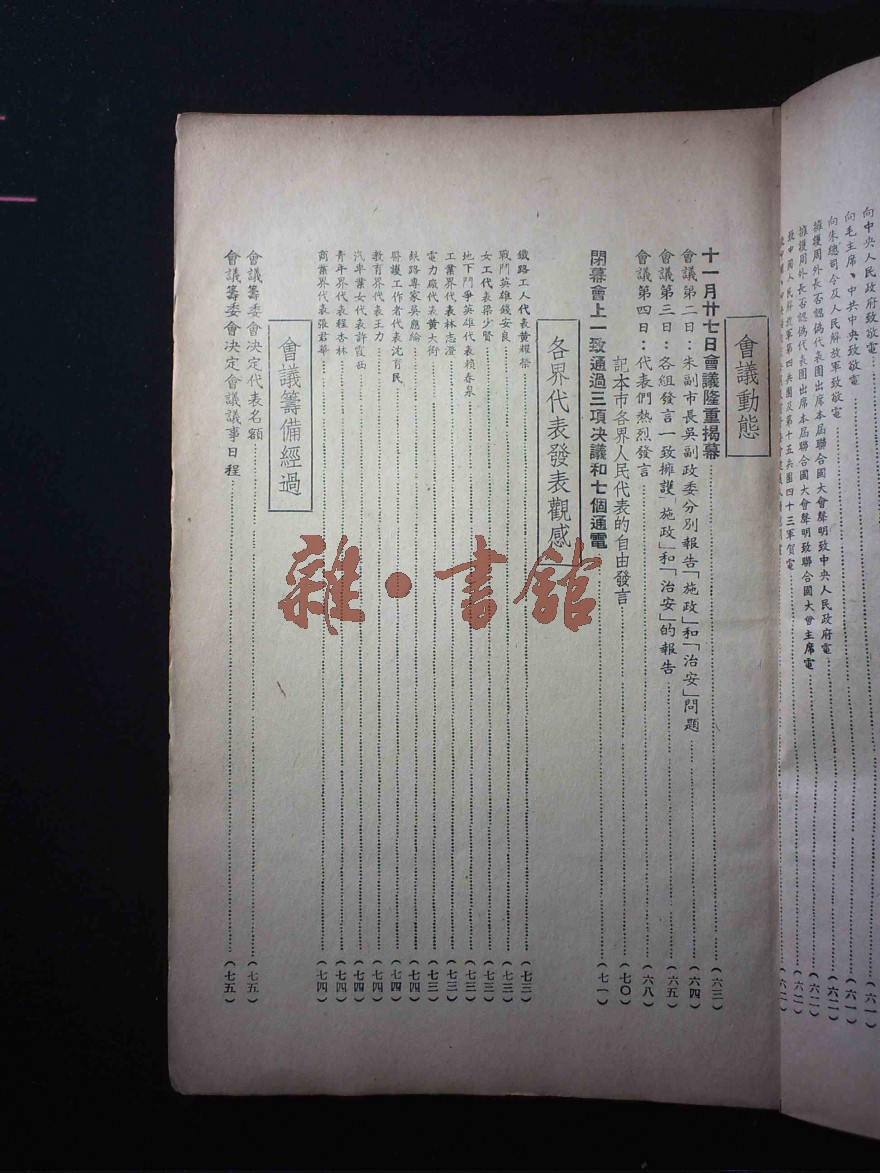 向中央人民政府致敬電……(六一)
向毛主席、中共中央致敬電……(六一)
向朱總司令及人民解放軍致敬電……(六二)
擁護周外長否認偽代表團出席本屆聯合國大會聲明致中央人民政府電……(六二)
擁護周外長否認偽代表團出席本屆聯合國大會聲明致聯合國大會主席電……(六二)
致中國人民解放軍第四兵團及第十五兵團四十三軍賀電……(六二)
會議動態
十一月廿七日會議隆重揭幕……(六三)
會議第二日:朱副市長吳副政委分別報告「施政」和「治安」問題……(六四)
會議第三日:各組發言一致擁護「施政」和「治安」的報告……(六五)
會議第四日:代表們熱烈發言……(六八)
記本市各界人民代表的自由發言……(七〇)
閉幕會上一致通過三項決議和七個通電……(七一)
各界代表發表觀感
鐵路工人代表黃耀榮……(七三)
戰鬥英雄錢安良……(七三)
女工代表梁少賢……(七三)
地下鬥爭英雄代表賴春泉……(七三)
工業界代表林志澄……(七三)
電力廠代表黃大銜……(七三)
鉄路專家吳應綸……(七四)
醫護工作者代表沈育民……(七四)
教育界代表王力……(七四)
汽車業女代表許霞岳……(七四)
青年界代表程杏林……(七四)
商業界代表張君華……(七四)
會議籌備經過
會議籌委會決定代表名額……(七五)
會議籌委會決定會議議事日程……(七五)
雜·書館